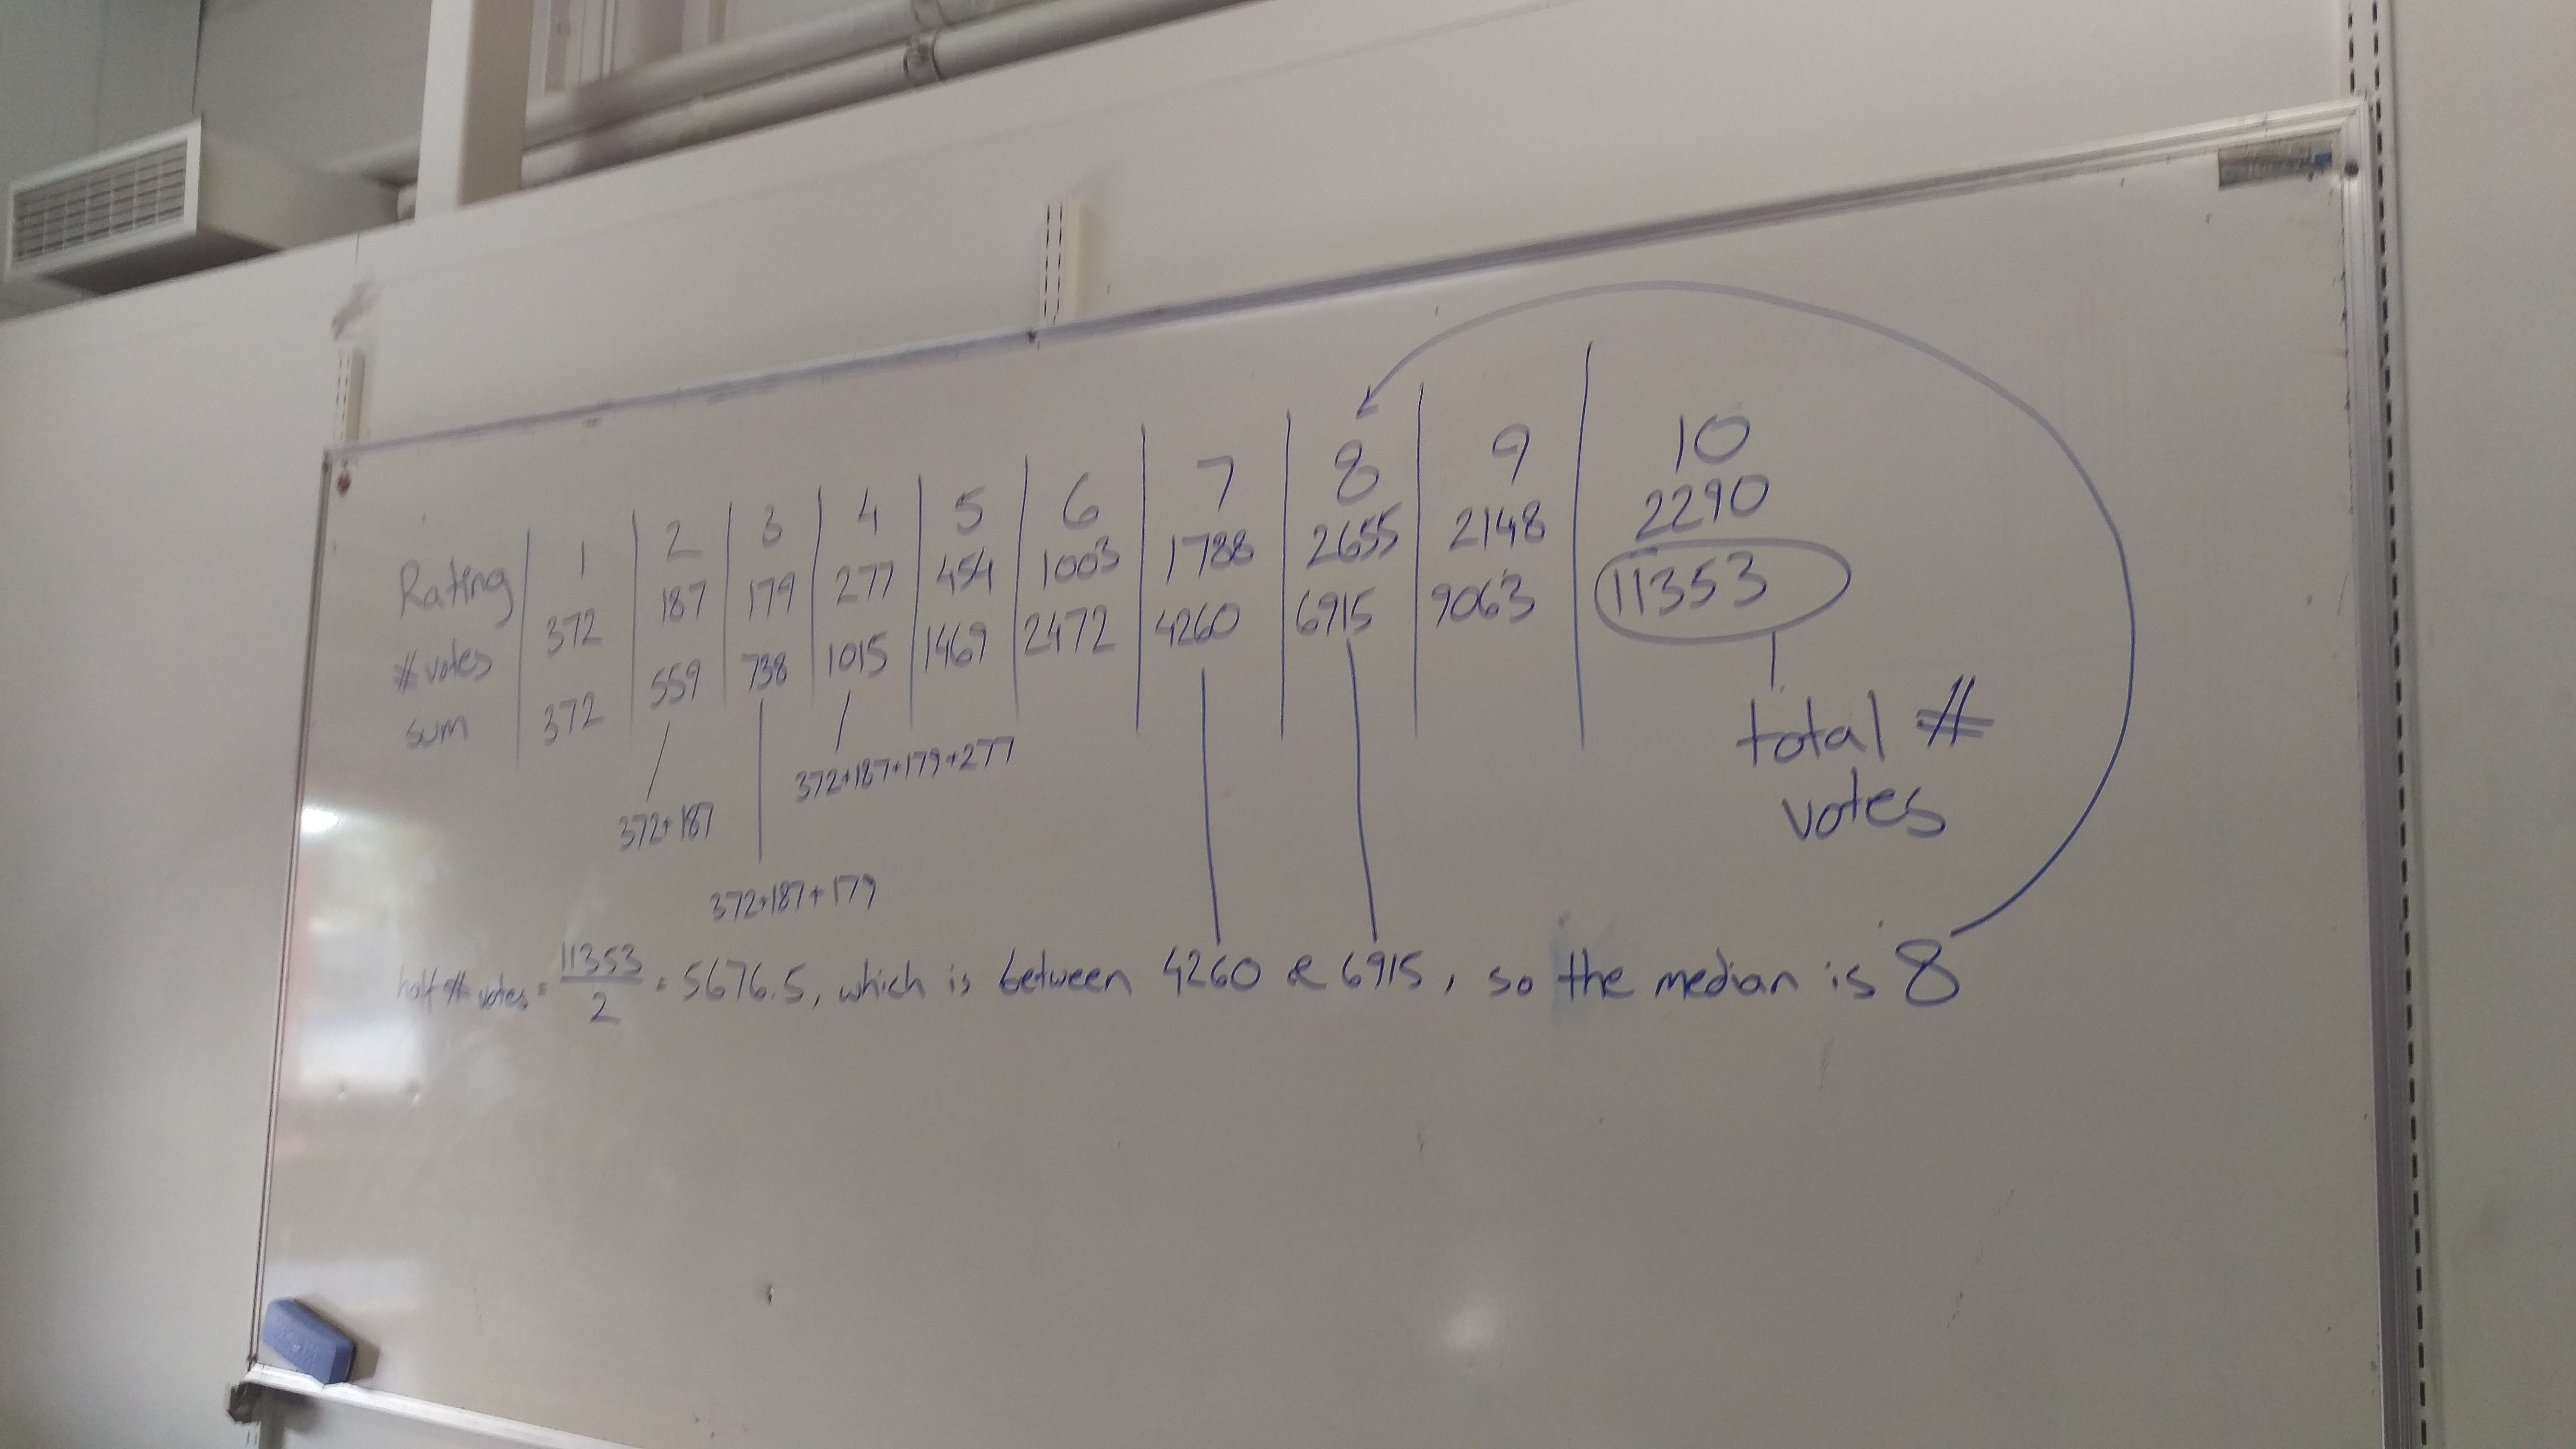 Rating 1 2 3 4 5 6 7 8 9 10
# votes 372 187 179 277 454 1003 1788 2655 2148 2290
sum 372 559 738 1015 1469 2472 4260 6915 9063 11353
372+187
372+187+179
372+187+179+277
total #
votes
half # votes = 11353/2 = 5676.5, which is between 4260 & 6915, so the median is 8